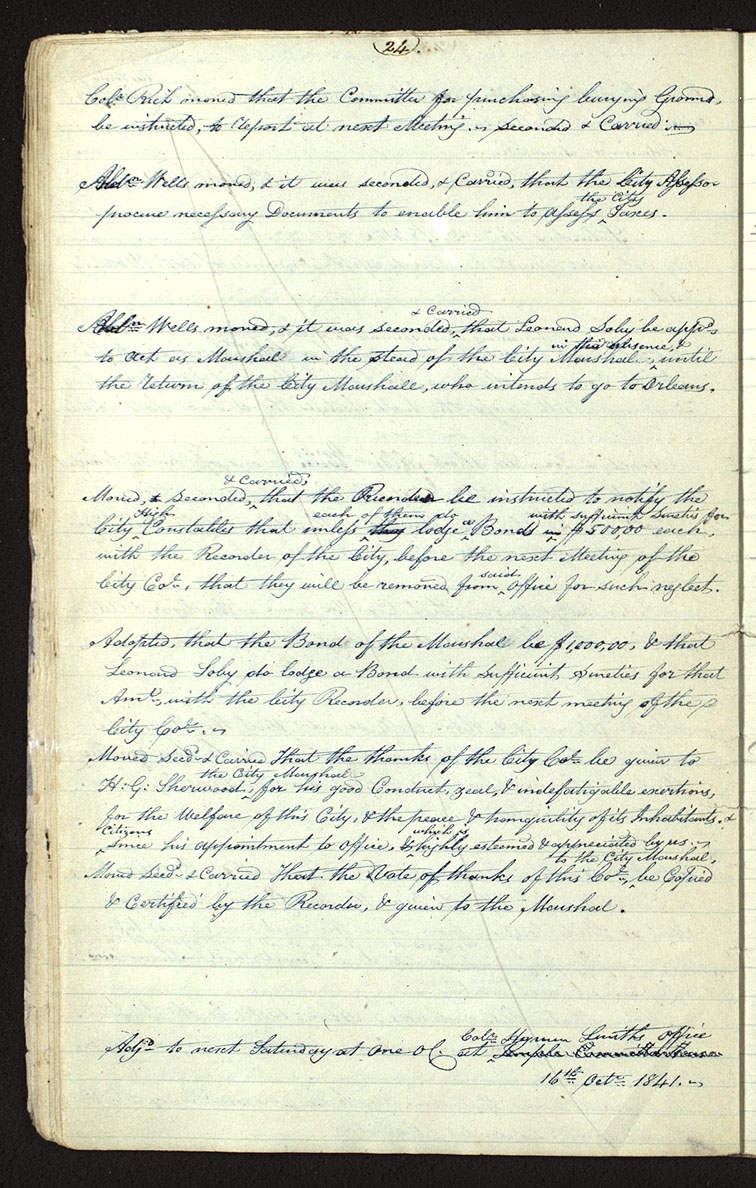 24.
Colr. Rich moved that the Committee for purchasing burying Ground,
be instructed, to Report at next Meeting. seconded & Carried.
Alder Wells moved, & it was seconded, & Carried, that the City Assessor
the City
procure necessary Documents to enable him to assess Taxes.
& Carried
Alder Wells moved, & it was seconded, that Leonard Soby be appd.
in his absence, &
to act as Marshal in the stead of the City Marshal, until
the return of the City Marshall, who intends to go to Orleans.
& Carried,
Moved, & seconded, that the Recorder be instructed to notify the
High each of them do with sufficient sureties for
City Constables that unless they lodge a Bond in $500,00 each,
with the Recorder of the City, before the next Meeting of the
said
City Col., that they will be removed from office for such neglect.
Adopted, that the Bond of the Marshal be $1,000,00, & that
Leonard Soby do lodge a Bond with sufficient sureties for that
Amt., with the City Recorder, before the next meeting of the
City Col.
Moved Secd. & Carried That the thanks of the City Col. be given to
the City Marshal
H: G: Sherwood, for his good Conduct, zeal, & indefatigable exertions,
for the Welfare of this City, & the peace & tranquility of its Inhabitants. &
Citizens which is
since his appointment to office, & highly esteemed & appreciated by us.
to the City Marshal,
Moved Secd. & Carried That the Vote of thanks of this Col., be Copied
& Certified by the Recorder, & given to the Marshal.
Colr. Hyrum Smiths Office
Adjd. to next Saturday at One O C. at Temple Committee House
16th. Octr. 1841.